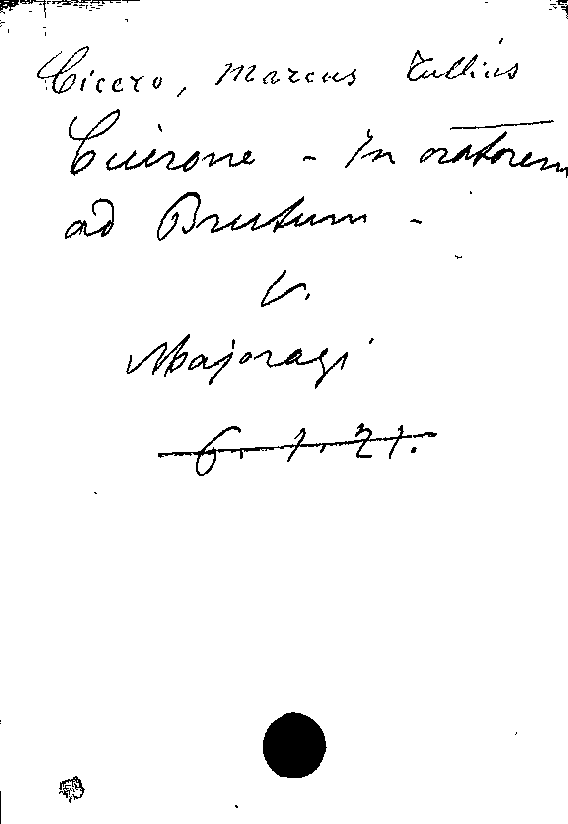 Cicero, Marcus Tullius
Cicerone - In oratorem
ad Brutum -
V.
Majoragi
6. 1. 21.